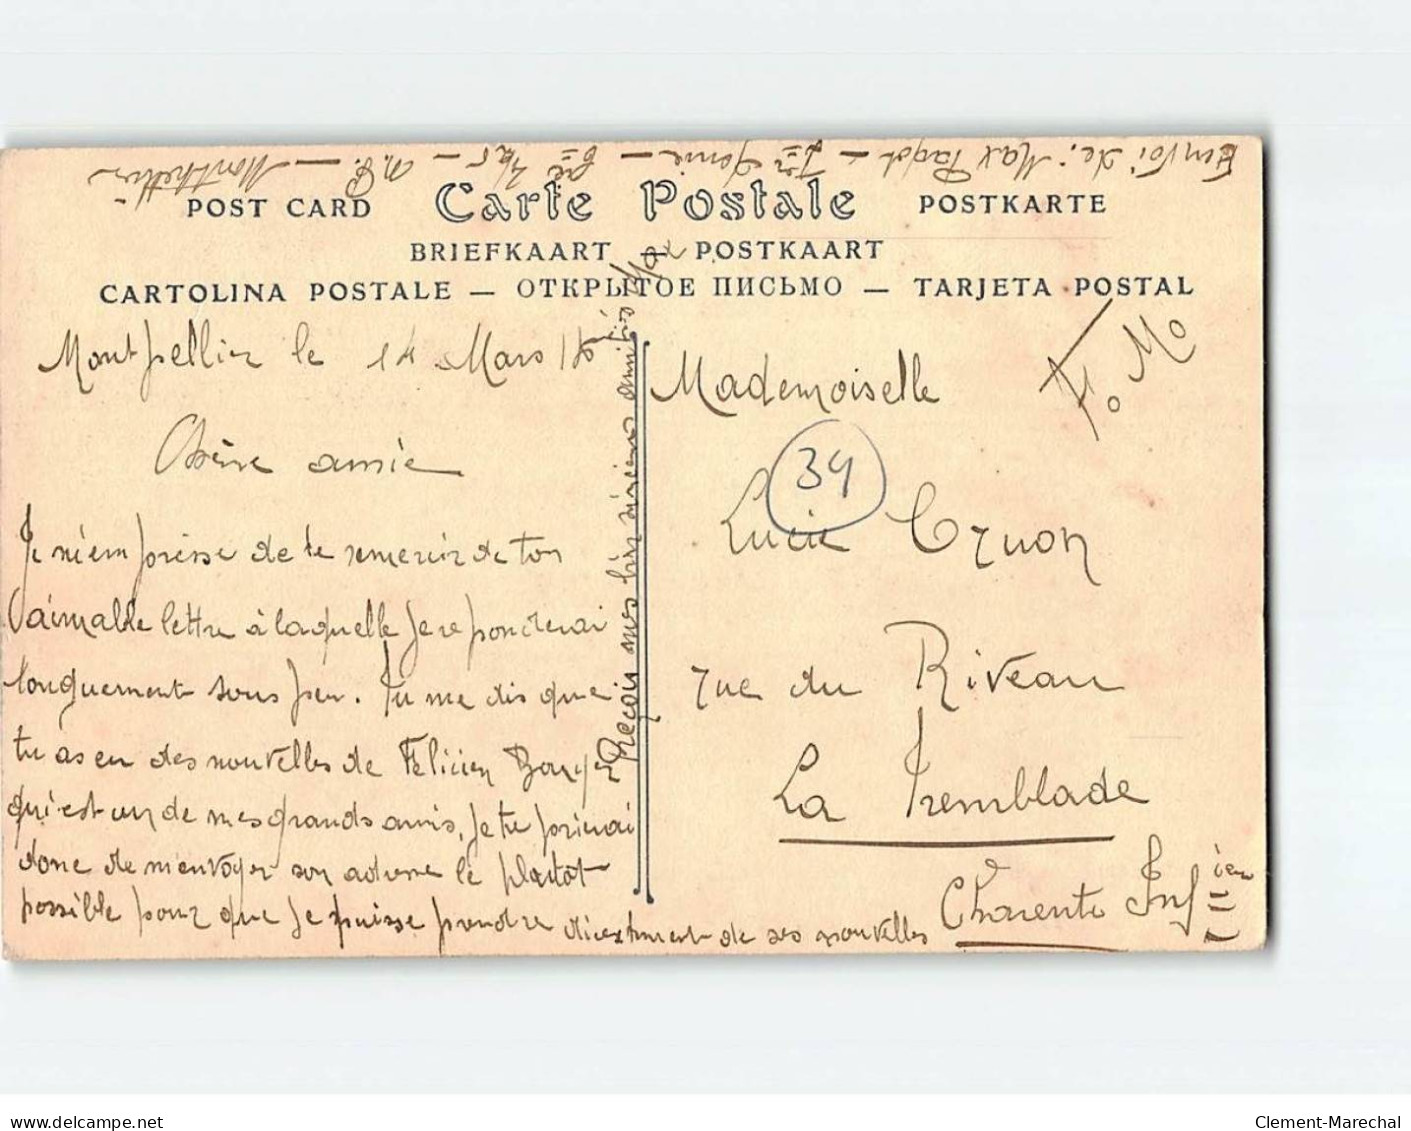 Envoi de: Max Pagot — Génie — — Montpellier
POST CARD Carte Postale POSTKARTE
BRIEFKAART — POSTKAART
CARTOLINA POSTALE — ОТКРЫТОЕ ПИСЬМО — TARJETA POSTAL
Montpellier le 14 Mars
Chère amie
Je m'empresse de te remercir de ton
aimable lettre à laquelle je repondrai
longuement sous peu. Tu me dis que
tu as eu des nouvelles de Félicien
qui est un de mes grands amis, je te prierai
donc de m'envoyer son adresse le plutôt
possible pour que je puisse prendre directement de ses nouvelles
Reçois mes bien sincères amitiés Max
Mademoiselle
F. M.
34
Lucie
rue du Riveau
La Tremblade
Charente Inf ieu
www.delcampe.net
Clement-Marechal